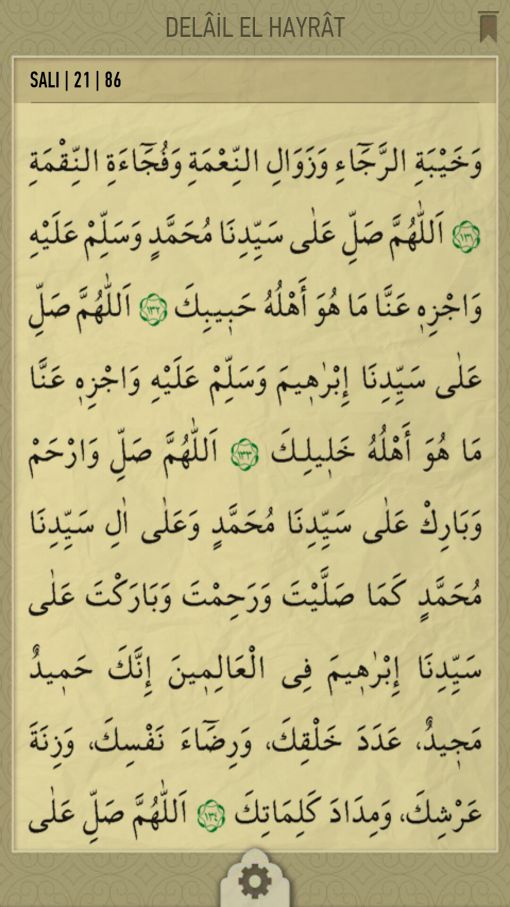 DELÂİL EL HAYRÂT
SALI | 21 | 86
وَخَيْبَةِ الرَّجَٓاءِ وَزَوَالِ النِّعْمَةِ وَفُجَٓاءَةِ النِّقْمَةِ
﴿١٣١﴾ اَللّٰهُمَّ صَلِّ عَلٰى سَيِّدِنَا مُحَمَّدٍ وَسَلِّمْ عَلَيْهِ
وَاجْزِهٖ عَنَّا مَا هُوَ أَهْلُهُ حَبٖيبِكَ ﴿١٣٢﴾ اَللّٰهُمَّ صَلِّ
عَلٰى سَيِّدِنَا إِبْرٰهٖيمَ وَسَلِّمْ عَلَيْهِ وَاجْزِهٖ عَنَّا
مَا هُوَ أَهْلُهُ خَلٖيلِكَ ﴿١٣٣﴾ اَللّٰهُمَّ صَلِّ وَارْحَمْ
وَبَارِكْ عَلٰى سَيِّدِنَا مُحَمَّدٍ وَعَلٰى اٰلِ سَيِّدِنَا
مُحَمَّدٍ كَمَا صَلَّيْتَ وَرَحِمْتَ وَبَارَكْتَ عَلٰى
سَيِّدِنَا إِبْرٰهٖيمَ فِى الْعَالَمٖينَ إِنَّكَ حَمٖيدٌ
مَجٖيدٌ، عَدَدَ خَلْقِكَ، وَرِضَٓاءَ نَفْسِكَ، وَزِنَةَ
عَرْشِكَ، وَمِدَادَ كَلِمَاتِكَ ﴿١٣٤﴾ اَللّٰهُمَّ صَلِّ عَلٰى